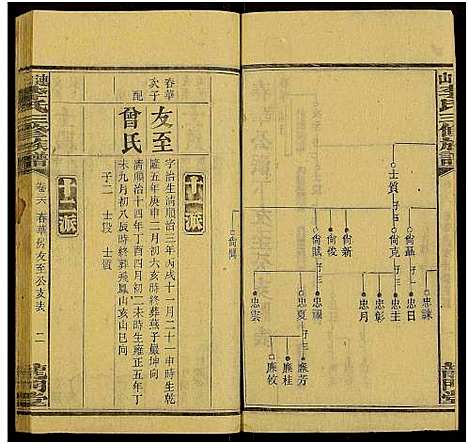 李氏三修族譜
士質
尚聶
尚克
尚新
尚賦
尚俊
忠諫
忠日
忠主
忠彰
忠月
忠福
忠夏
忠雲
廉芳
廉桂
廉牧
十一派
春華
次子
友至
字治生清順治三年丙戌十一月二十一申時生乾
隆五年庚申二月初六亥時終葬燕子嚴坤向
配
曾氏
清順治十四年丁酉四月初二未時生雍正五年丁
未九月初八辰時終葬飛鳳山亥山巳向
子二 士段 士質
十二派
李氏三修族譜
卷六
春華房友至公支表
二
龍門堂